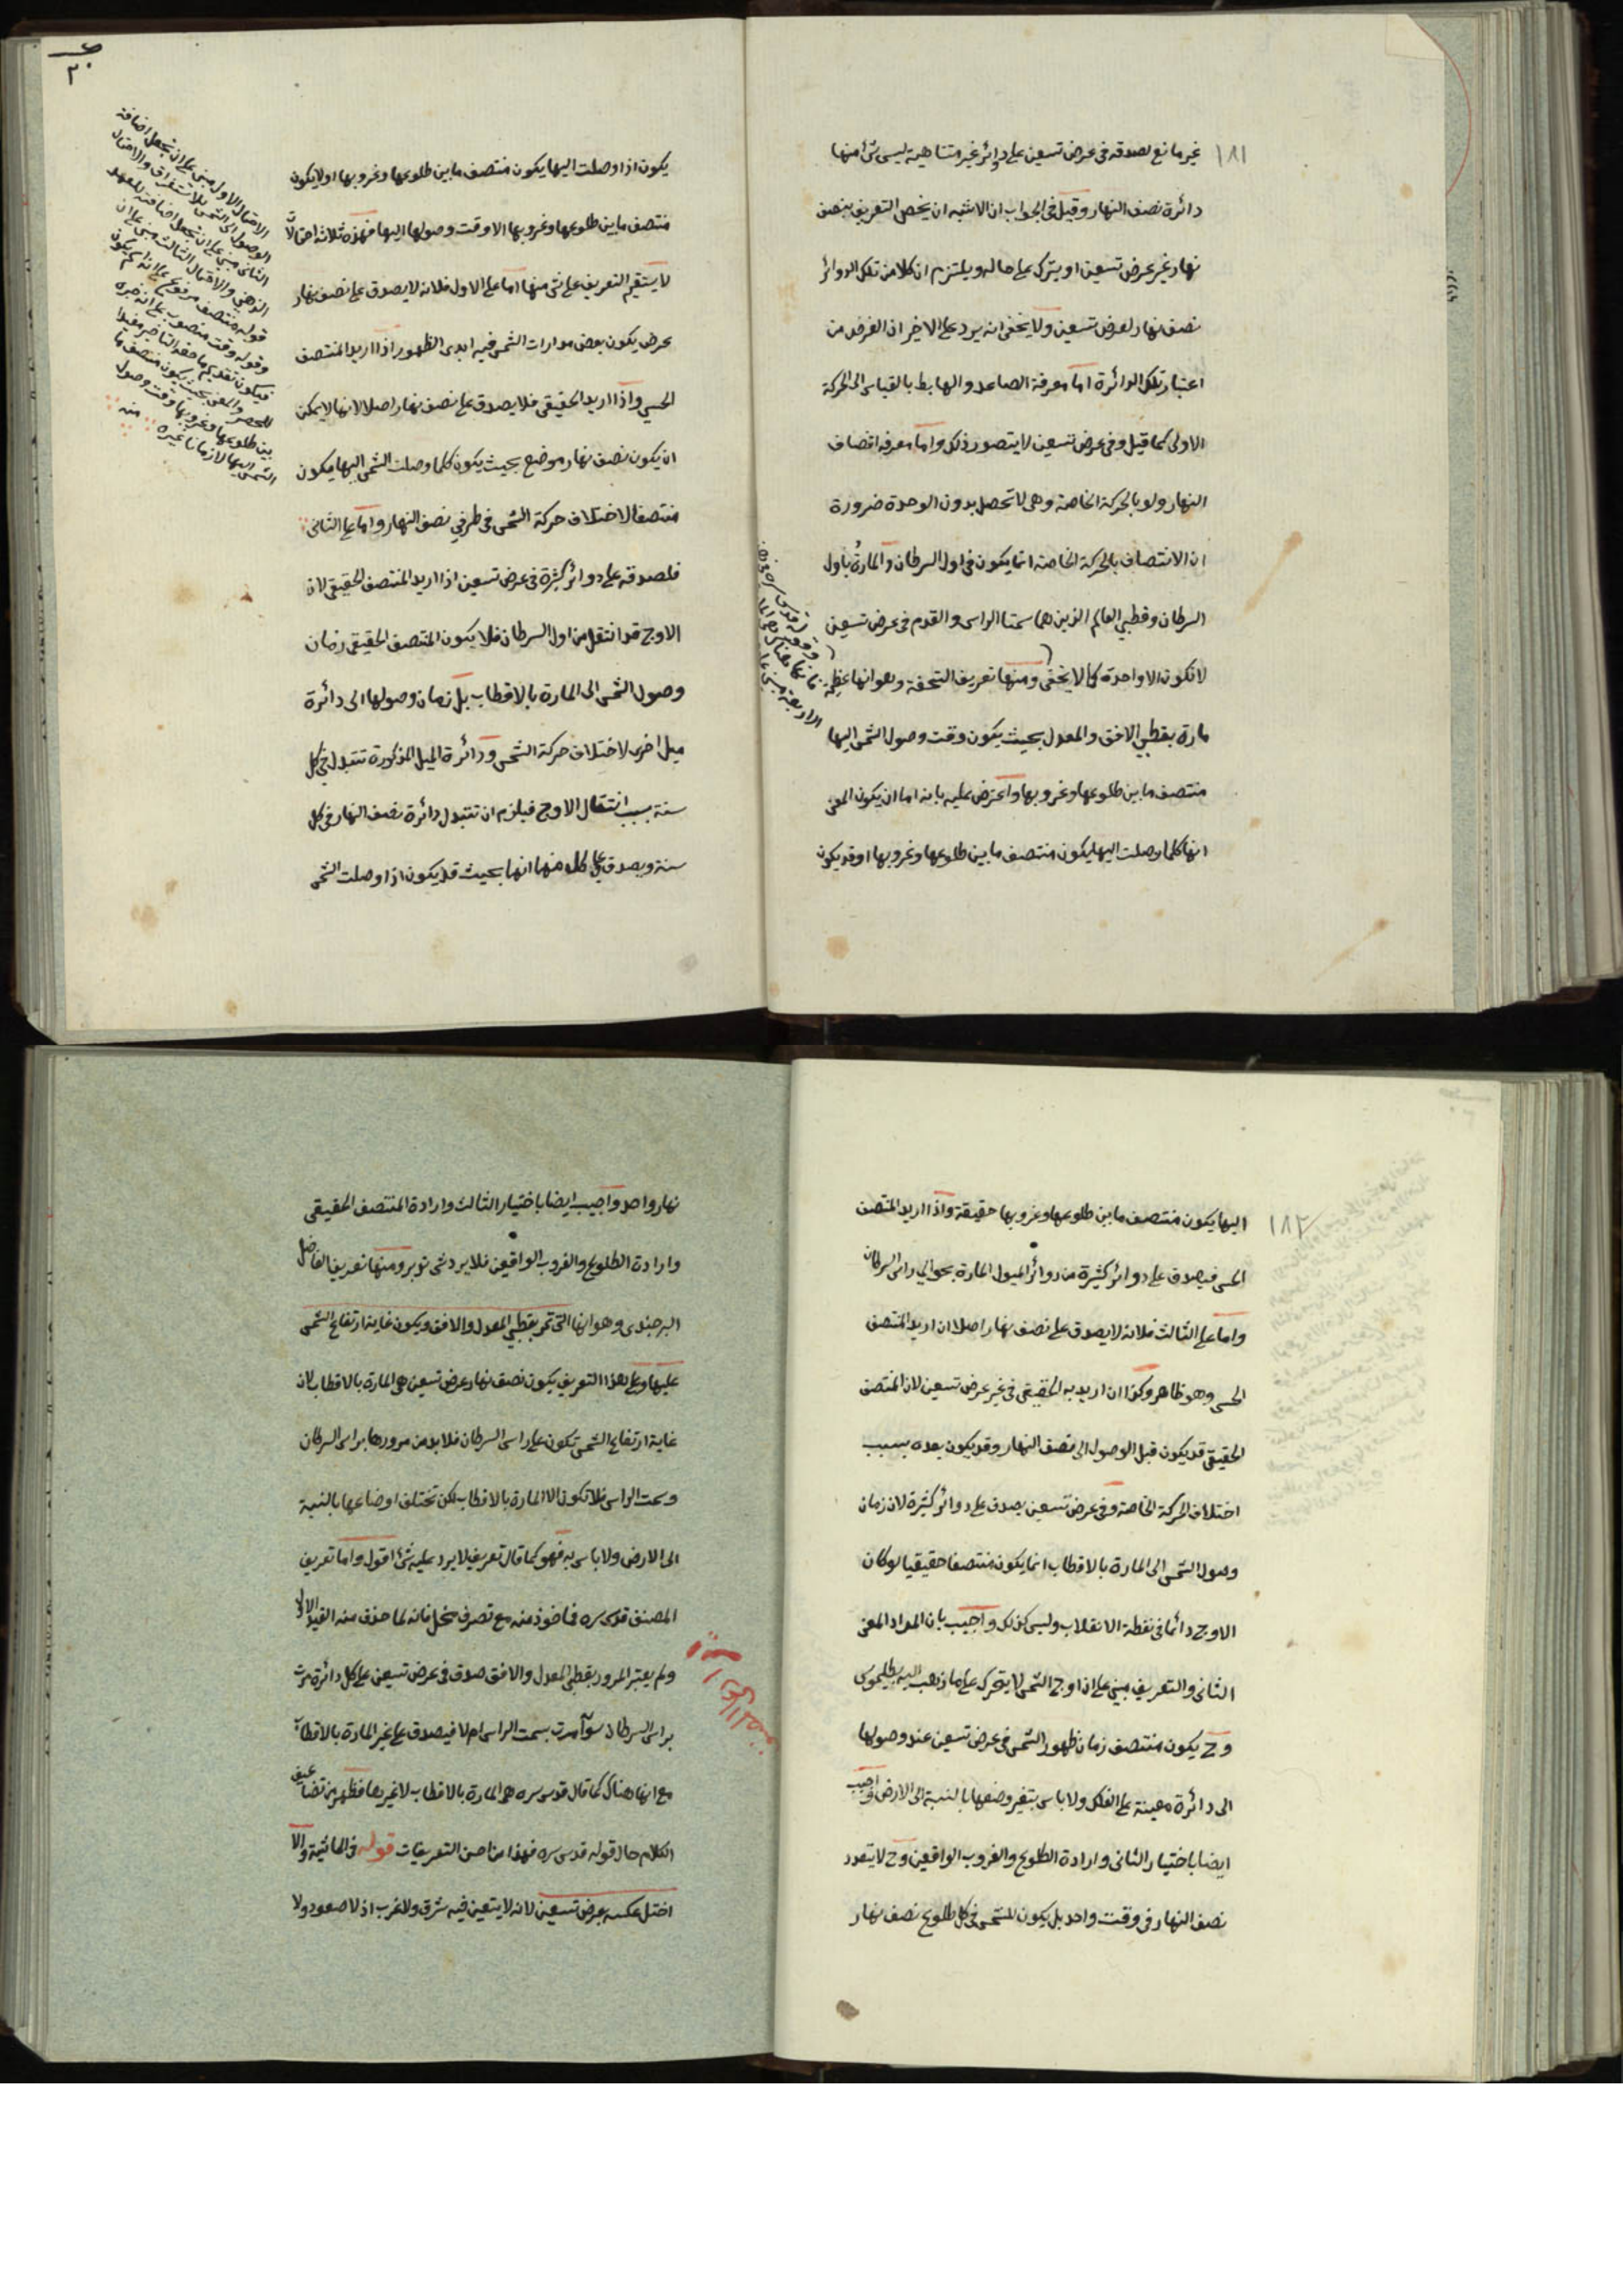 ١٨١
غير مانع لصدقه فى عرض تسعين على دوائر غير متناهية ليس شئ منها
دائرة نصف النهار وقيل فى الجواب ان الاشبه ان يخص التعريف بنصف
نهار غير عرض تسعين او يترك على حاله ويلتزم ان كلا من تلك الدوائر
نصف نهار لعرض تسعين ولا يخفى انه يرد على الاخير ان الغرض من
اعتبار تلك الدائرة اما معرفة الصاعد والهابط بالقياس الى الحركة
الاولى كما قيل وفى عرض تسعين لا يتصور ذلك واما معرفة انصاف
النهار ولو بالحركة الخاصة وهى لا تحصل بدون الوحدة ضرورة
ان الانتصاف بالحركة الخاصة انما يكون فى اول السرطان والمارة باول
السرطان وقطبي العالم الذين هما سمتا الراس والقدم فى عرض تسعين
لا تكون الا واحدة كما لا يخفى ومنها تعريف التحفة وهو انها عظيمة
مارة بقطبي الافق والمعدل بحيث يكون وقت وصول الشمس اليها
منتصف ما بين طلوعها وغروبها واعترض عليه بانه اما ان يكون المعنى
انها كلما وصلت اليها يكون منتصف ما بين طلوعها وغروبها او قد يكون
٢٠
يكون اذا وصلت اليها يكون منتصف ما بين طلوعها وغروبها او لا يكون
منتصف ما بين طلوعها وغروبها الا وقت وصولها اليها فهذه ثلاثة احتمالات
لا يستقيم التعريف على شئ منها اما على الاول فلانه لا يصدق على نصف نهار
عرض يكون بعض مدارات الشمس فيه ابدى الظهور اذا اريد المنتصف
الحسي واذا اريد الحقيقي فلا يصدق على نصف نهار اصلا لانها لا يمكن
ان يكون نصف نهار موضع بحيث يكون كلما وصلت الشمس اليها يكون
منتصفا لاختلاف حركة الشمس فى طرفي نصف النهار واما على الثانى
فلصدقه على دوائر كثيرة فى عرض تسعين اذا اريد المنتصف الحقيقي لان
الاوج قد انتقل من اول السرطان فلا يكون المنتصف الحقيقي زمان
وصول الشمس الى المارة بالاقطاب بل زمان وصولها الى دائرة
ميل اخرى لاختلاف حركة الشمس ودائرة الميل المذكورة تتبدل فى كل
سنة بسبب انتقال الاوج فيلزم ان تتبدل دائرة نصف النهار فى كل
سنة ويصدق على كل منها انها بحيث قد يكون اذا وصلت الشمس
الاحتمال الاول مبنى على ان تجعل اضافة
الوصول الى الشمس للاستغراق والاحتمال
الثانى مبنى على ان تجعل اضافته للعهد
الذهنى والاحتمال الثالث مبنى على ان
قوله منتصف مرفوع على انه اسم يكون
وقوله وقت منصوب على انه خبره
فيكون تقديم ما حقه التاخير مفيدا
للحصر والمعنى بحيث يكون منتصف ما
بين طلوعها وغروبها وقت وصول
الشمس اليها لا زمانا غيره منه
١٨٢
اليها يكون منتصف ما بين طلوعها وغروبها حقيقة واذا اريد المنتصف
الحسي فيصدق على دوائر كثيرة من دوائر الميول المارة بحوالي راس السرطان
واما على الثالث فلانه لا يصدق على نصف نهار اصلا ان اريد المنتصف
الحسي وهو ظاهر وكذا ان اريد به الحقيقي فى غير عرض تسعين لان المنتصف
الحقيقي قد يكون قبل الوصول الى نصف النهار وقد يكون بعده بسبب
اختلاف الحركة الخاصة وفى عرض تسعين يصدق على دوائر كثيرة لان زمان
وصول الشمس الى المارة بالاقطاب انما يكون منتصفا حقيقيا لو كان
الاوج دائما فى نقطة الانقلاب وليس كذلك واجيب بان المراد المعنى
الثانى والتعريف مبني على ان اوج الشمس لا يتحرك على ما ذهب اليه بطليموس
وح يكون منتصف زمان ظهور الشمس فى عرض تسعين عند وصولها
الى دائرة معينة على الفلك ولا باس بتغير وضعها بالنسبة الى الارض واجيب
ايضا باختيار الثانى وارادة الطلوع والغروب الواقعين وح لا يتعدد
نصف النهار فى وقت واحد بل يكون للشمس فى كل طلوع نصف نهار
نهار واحد واجيب ايضا باختيار الثالث وارادة المنتصف الحقيقي
وارادة الطلوع والغروب الواقعين فلا يرد شئ تدبر ومنها تعريف الفاضل
البرجندى وهو انها التى تمر بقطبي المعدل والافق ويكون غاية ارتفاع الشمس
عليها وعلى هذا التعريف يكون نصف نهار عرض تسعين هى المارة بالاقطاب لان
غاية ارتفاع الشمس تكون على راس السرطان فلا بد من مرورها براس السرطان
وسمت الراس فلا تكون الا المارة بالاقطاب لكن تختلف اوضاعها بالنسبة
الى الارض ولا باس به فهو كما قال تعريف لا يرد عليه شئ اقول واما تعريف
المصنف قدس سره فماخوذ منه مع تصرف مخل فانه لما حذف منه القيد الاول
ولم يعتبر المرور بقطبي المعدل والافق صدق فى عرض تسعين على كل دائرة مرت
براس السرطان سواء مرت بسمت الراس ام لا فيصدق على غير المارة بالاقطاب
مع انها هناك كما قال قدس سره هى المارة بالاقطاب لا غيرها فظهر من تضاعيف
الكلام حال قوله قدس سره فهذا من احسن التعريفات قوله فى الحاشية والا
اختل عكسه بعرض تسعين لانه لا يتعين فيه شرق ولا غرب اذ لا صعود ولا